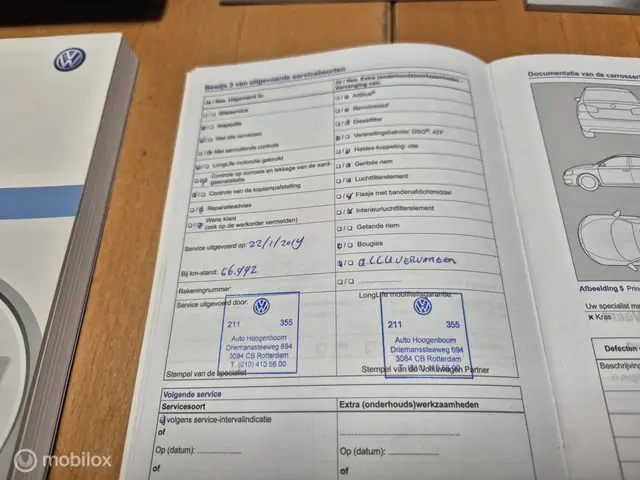 Bewijs 3 van uitgevoerde servicebeurten
Ja / Nee Uitgevoerd is:
Olieservice
Inspectie
Met olie verversen
Met aanvullende controle
LongLife motorolie gebruikt
Controle op corrosie en lekkage van de aard-
gasinstallatie
Controle van de koplampafstelling
Reparatieadvies
Wens klant
(ook op de werkorder vermelden)
Service uitgevoerd op: 22/1/2019
Bij km-stand: 66.442
Rekeningnummer:
Service uitgevoerd door:
211 355
Auto Hoogenboom
Driemanssteeweg 694
3084 CB Rotterdam
T. (010) 410 56 00
Stempel van de specialist
Ja / Nee Extra (onderhouds)werkzaamheden -
Vervanging van:
AdBlue®
Remvloeistof
Gasstfilter
Versnellingsbakolie: DSG®, ATF
Haldex-koppeling: olie
Geribde riem
Luchtfilterelement
Flesje met bandenafdichtmiddel
Interieurluchtfilterelement
Getande riem
Bougies
ACCU VERVANGEN
LongLife mobiliteitsgarantie:
211 355
Auto Hoogenboom
Driemanssteeweg 694
3084 CB Rotterdam
Stempel van de Volkswagen Partner
Volgende service
Servicesoort
volgens service-intervalindicatie
of
Op (datum):
of
Extra (onderhouds)werkzaamheden
Op (datum):
of
Documentatie van de carrosser
Afbeelding 5 Prin
Uw specialist ma
× Kras
Defecten
Beschrijving
mobilox